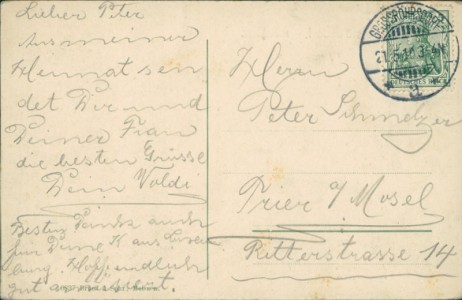 Lieber Peter
Aus meiner
Heimat sen
det Dir und
Deiner Frau
die besten Grüsse
Dein Voldi
Besten Dank auch
für Deine K aus
burg. Hoff, endlich
gut ausgeruht.
GROSSRÖHRSDORF
Herrn
Peter Schmelzer
Trier a/Mosel
Ritterstrasse 14